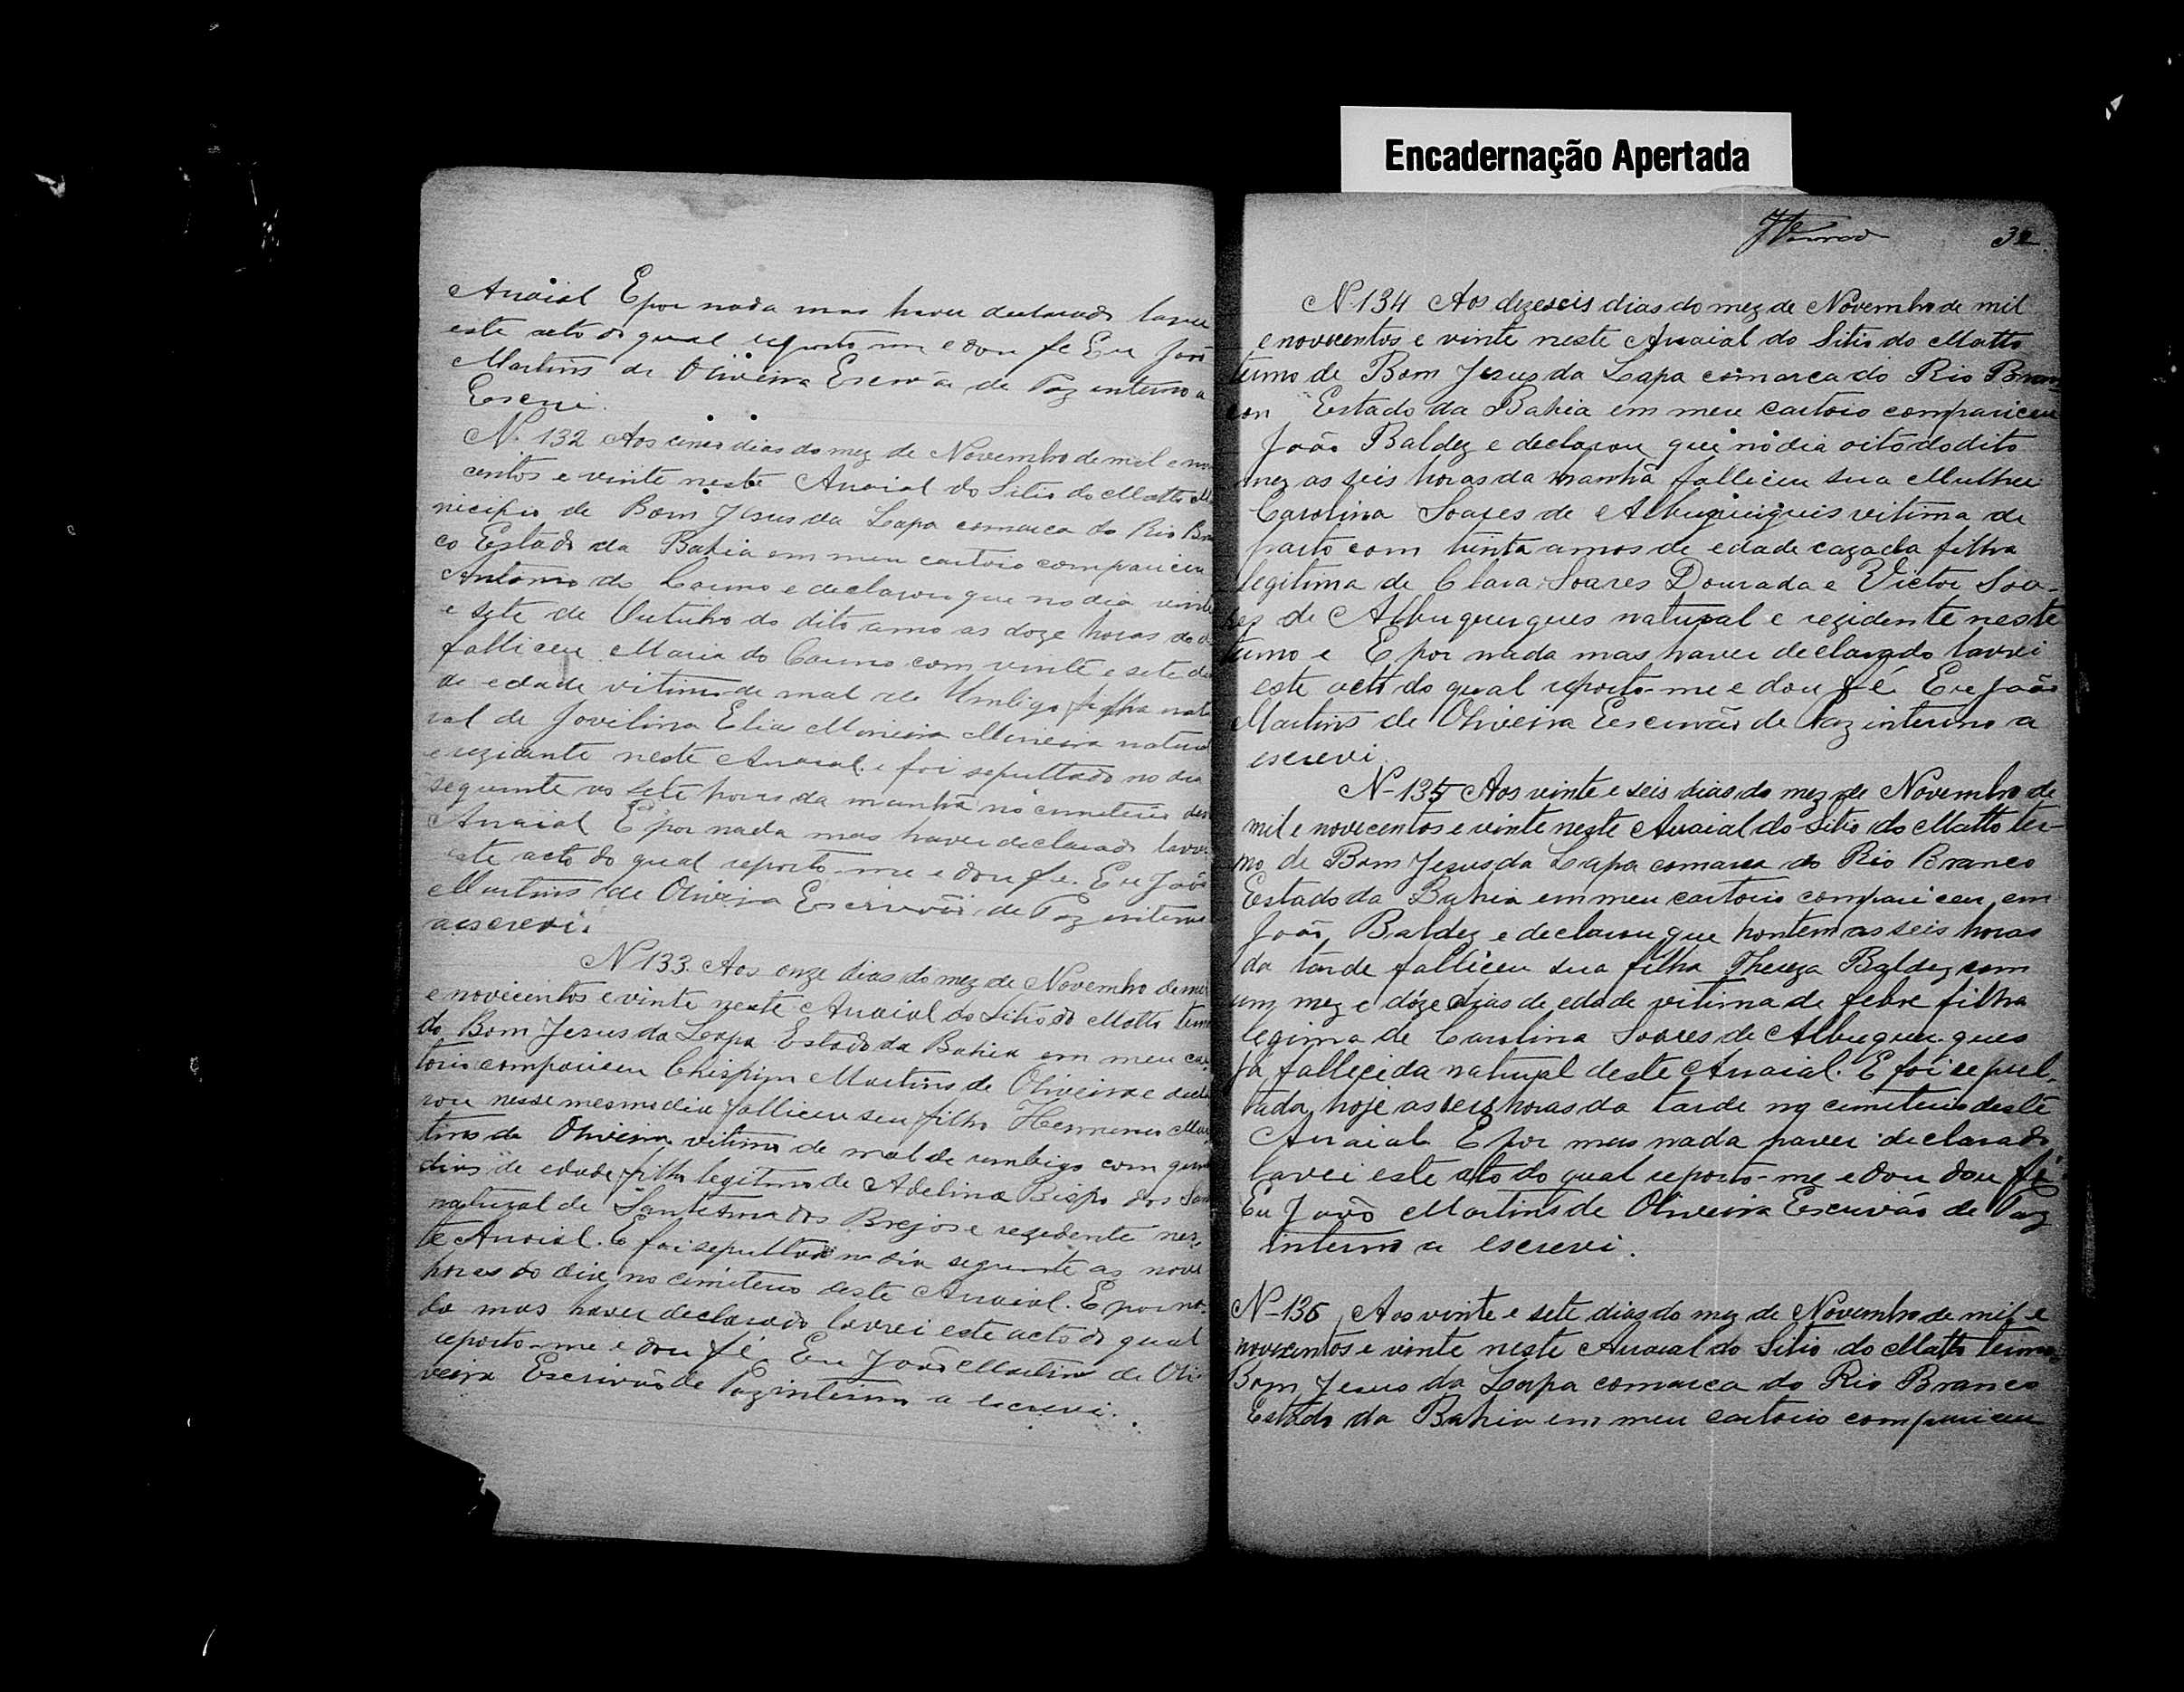 Arraial E por nada mas haver declarado lavrei
este acto do qual reporto me e dou fe Eu João
Martins de Oliveira Escrivão de Paz interino a
Escrvi.
N. 132 Aos cinco dias do mez de Novembro de mil e no
centos e vinte neste Arraial do Sitio do Matto Mu
nicipio de Bom Jesus da Lapa comarca do Rio Bran
co Estado da Bahia em meu cartorio compariceu
Antonio do Carmo e declarou que no dia vinte
e sete de Outubro do dito anno as doze horas do d
falliceu Maria do Carmo com vinte e sete di
de edade vitima de mal de Umbigo filha natu
ral de Jovelina Elia Moreira Mineira natural
e rezidente neste Arraial e foi sepultado no dia
seguinte as sete horas da manhã no cimeterio des
Arraial E por nada mas haver declarado lavrei
este acto do qual reporto-me e dou fe. Eu João
Martins de Oliveira Escrivão de Paz interino
a escrevi.
N 133. Aos onze dias do mez de Novembro de mil
e novicentos e vinte neste Arraial do Sitio do Matto termo
do Bom Jesus da Lapa Estado da Bahia em meu car
torio compariceu Chrispim Martins de Oliveira e decla
rou nesse mesmo dia falliceu seu filho Hermenes Mar
tins de Oliveira vitima de mal de umbigo com
dias de edade filho legitimo de Adelina Bispo dos San
natural de Santanna dos Brejos e rezedente nes-
te Arraial. E foi sepultado no dia seguinte as nove
horas do dia no cimiterio deste Arraial. E por na-
da mas haver declarado lavrei este acto do qual
reporto-me e dou fé Eu João Martins de Oli-
veira Escrivão de Paz interino a escrevi.
Encadernação Apertada
32
N-134 Aos dezeseis dias do mez de Novembro de mil
e novecentos e vinte neste Arraial do Sitio do Matto
termo de Bom Jesus da Lapa comarca do Rio Bran-
con Estado da Bahia em meu cartoio compariceu
João Baldez e declarou que no dia oito do dito
mez as seis horas da manhã falliceu sua Mulher
Carolina Soares de Albuquerques vitima de
parto com trinta annos de edade cazada filha
legitima de Clara Soares Dourada e Victor Soa-
res de Albuquerques natural e rezidente neste
termo e E por nada mas haver declarado lavrei
este acto do qual reporto-me e dou fé Eu João
Martins de Oliveira Eescrivão de Paz interino a
escrevi.
N-135 Aos vinte e seis dias do mez de Novembro de
mil e novecentos e vinte neste Arraial do Sitio do Matto ter-
mo de Bom Jesus da Lapa comarca do Rio Branco
Estado da Bahia em meu cartorio compariceu em
João Baldez e declarou que hontem as seis horas
da tarde falliceu sua filha Thereza Baldez com
um mez e dóze dias de edade vitima de febre filha
legima de Carolina Soares de Albuquerques
ja fallecida natural deste Arraial. E foi sepul-
tada hoje as seis horas da tarde no cimiterio deste
Arraial E por mas nada haver declarado
lavei este ato do qual reporto-me e dou dou fé
Eu João Martins de Oliveira Escrivão de Paz
interino a escrevi.
N-136 Aos vinte e sete dias do mez de Novembro de mil e
novecentos e vinte neste Arraial do Sitio do Matto termo
Bom Jesus da Lapa comarca do Rio Branco
Estado da Bahia em meu cartorio compariceu